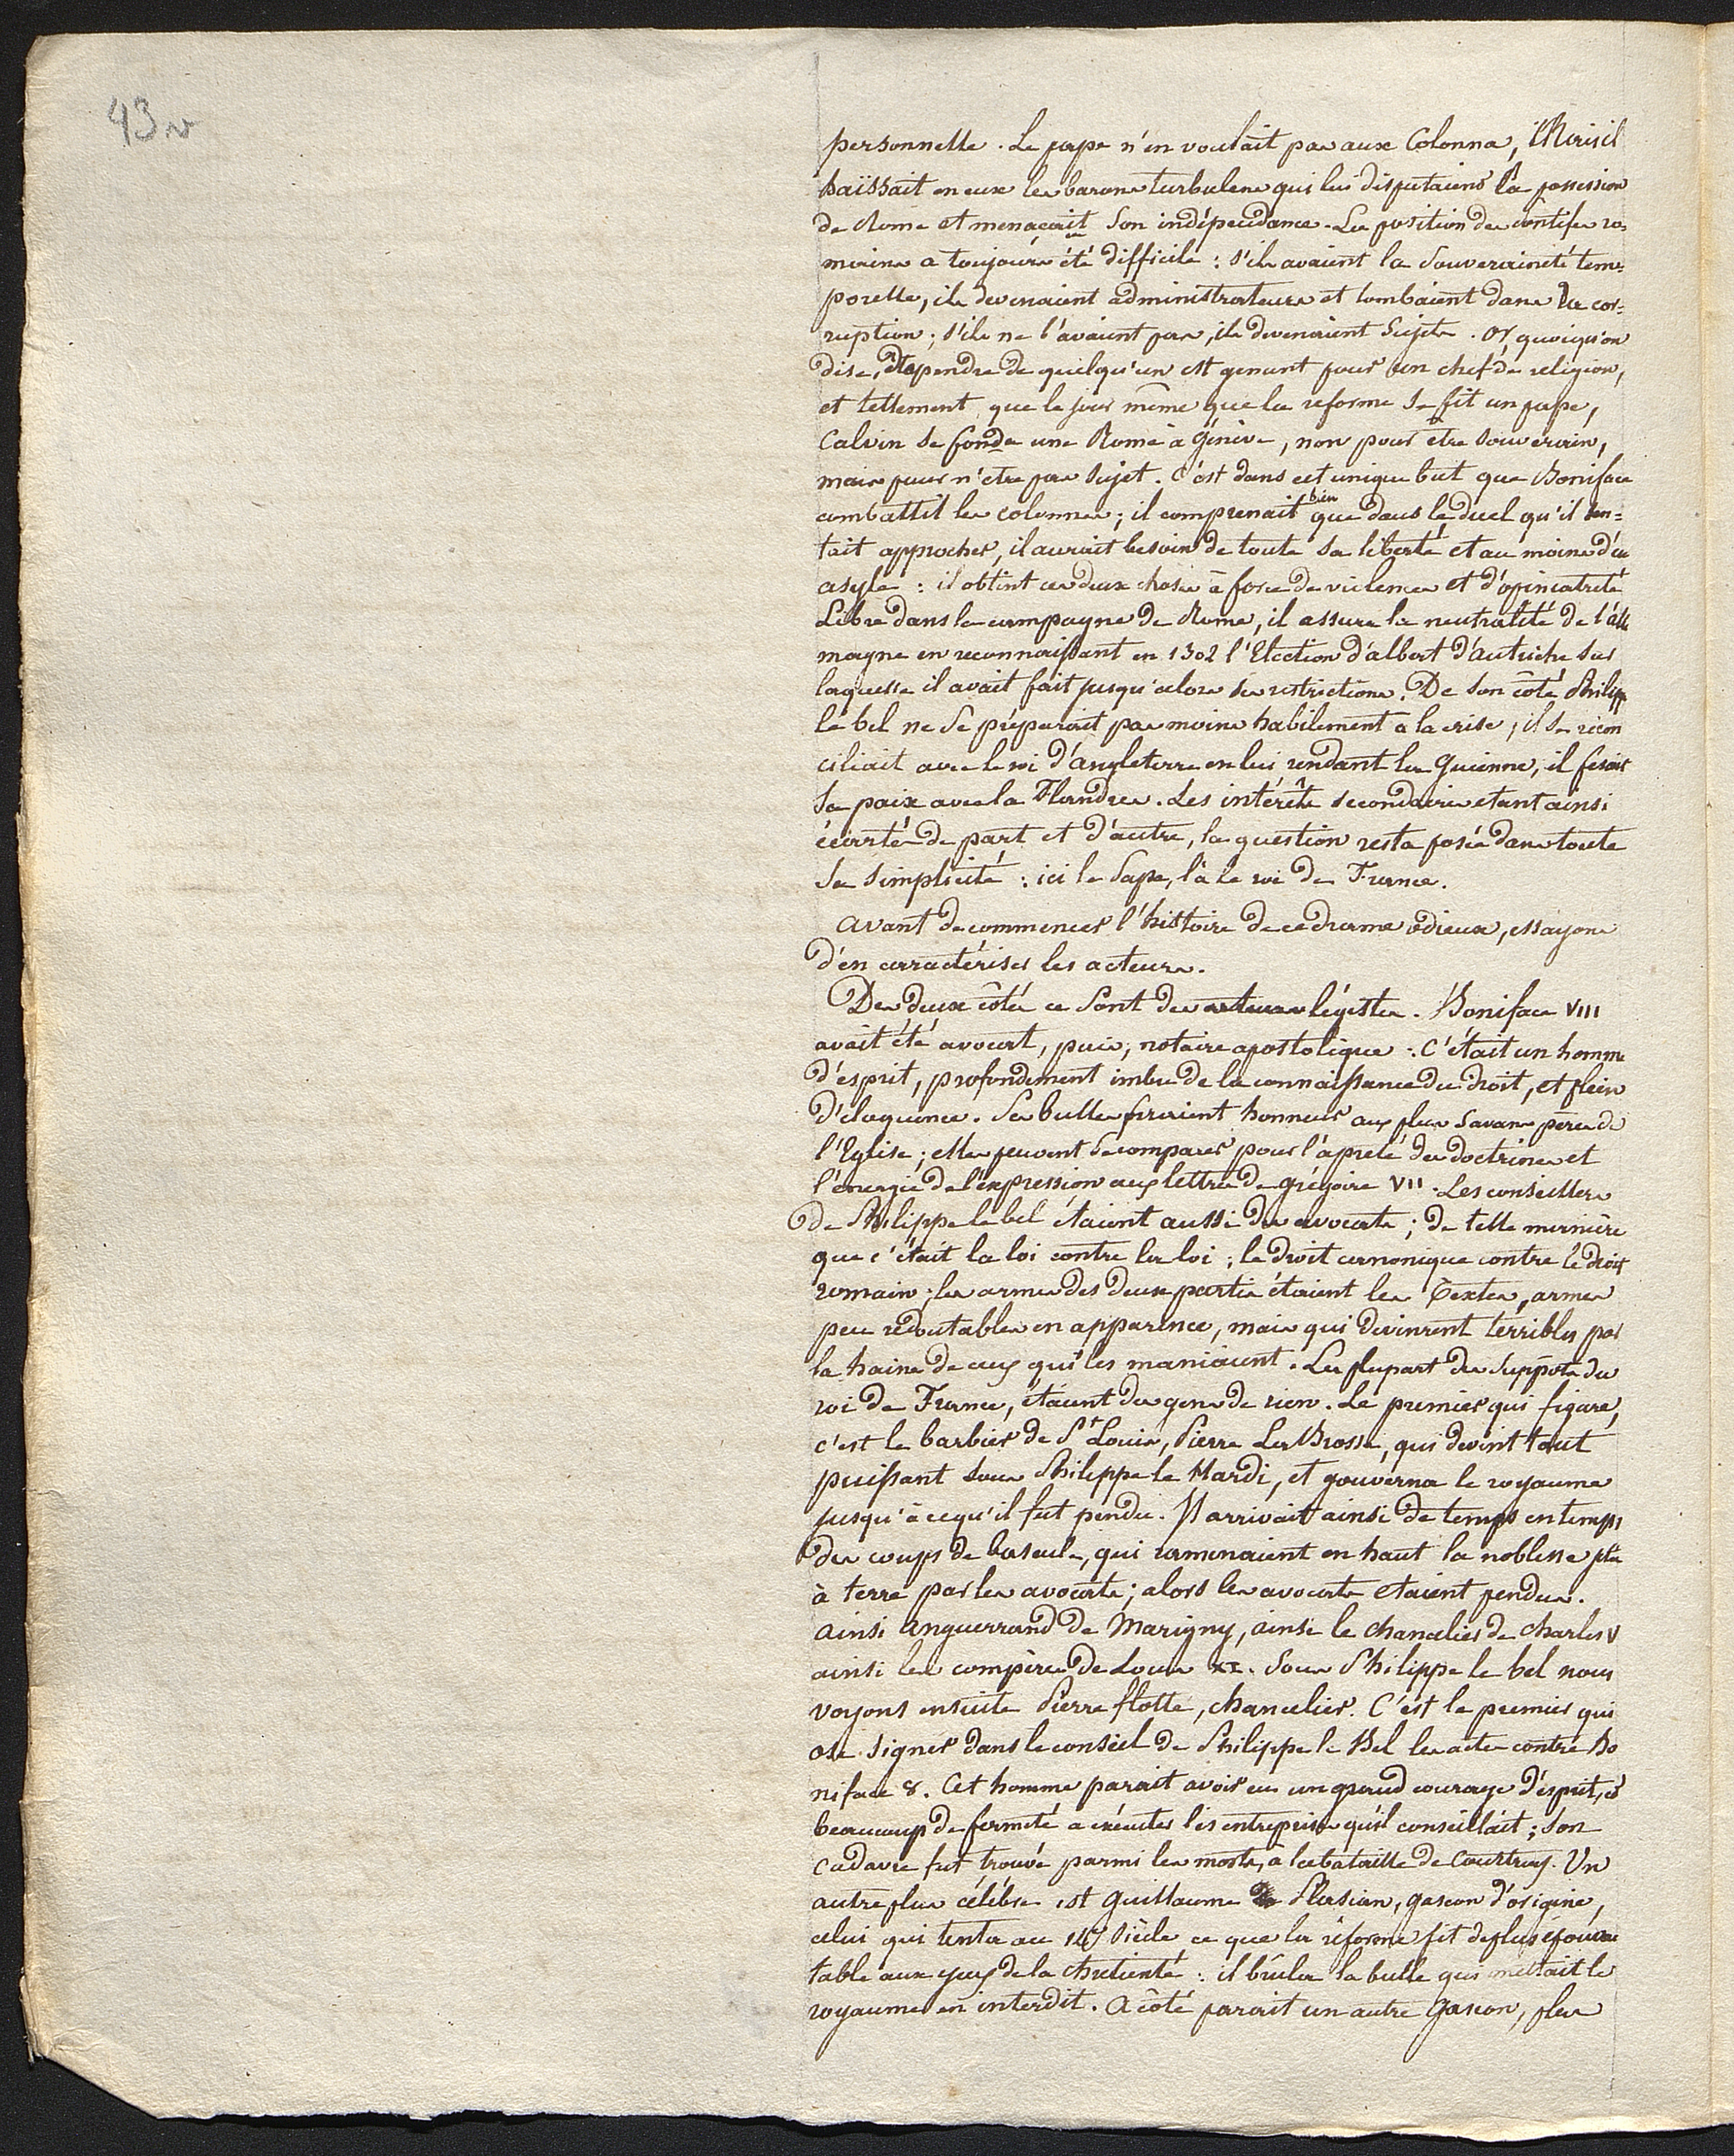 43 v
personnelle. Le pape n'en voulait pas aux Colonna, Mais il
haïssait en eux les barons turbulens qui lui disputaient la possession
de Rome et menaçait son indépendance. La position des pontifes ro-
mains a toujours été difficile : s'ils avaient la Souveraineté tem-
porelle, ils devenaient administrateurs et tombaient dans la cor-
ruption ; s'ils ne l'avaient pas, ils devenaient Sujets. Or, quoiqu'on
dise, dépendre de quelqu'un est genant pour un chef de religion,
et tellement que le jour même que la reforme se fit un pape,
Calvin se fonda une Rome à Génève, non pour être souverain,
mais pour n'etre pas sujet. C'est dans cet unique but que Boniface
combattit les colonnes ; il comprenait bien que dans le duel qu'il sen-
tait approcher, il aurait besoin de toute sa liberté et au moins d'un
asyle : il obtint ces deux choses à force de violences et d'opiniatreté
Libre dans la campagne de Rome, il assura la neutralité de l'alle
magne en reconnaissant en 1302 l'Election d'albert d'autriche sur
laquelle il avait fait jusqu'alors des restrictions. De son côté Philippe
le bel ne se préparait pas moins habilement a la crise ; il se récon
ciliait avec le roi d'angleterre en lui rendant la Guienne, il fesait
sa paix avec la Flandres. Les intérêts secondaires etant ainsi
écartés de part et d'autre, la question resta posée dans toute
sa simplicité : ici le Pape, là le roi de France.
avant de commencer l'histoire de ce drame odieux, essayons
d'en carractériser les acteurs.
Des deux côtés ce sont des acteurs légistes. Boniface VIII
avait été avocat, puis, notaire apostolique : C'était un homme
d'esprit, profondement imbu de la connaissance du droit, et plein
d'eloquence. Ses bulles feraient honneur aux plus savans pères de
l'Eglise ; elles peuvent se comparer pour l'apreté des doctrines et
l'énergie de l'expression aux lettres de grégoire VII. Les conseillers
de Philippe le bel étaient aussi des avocats ; de telle manière
que c'était la loi contre la loi ; le droit cannonique contre le droit
romain ; les armes des deux partis étaient les Textes, armes
peu rédoutables en apparence, mais qui devinrent terribles par
la haine de ceux qui les maniaient. La plupart des suppôts du
roi de France, étaient des gens de rien. Le premier qui figure,
c'est le barbier de St Louis, Pierre La Brosse, qui devint tout
puissant sous Philippe le Hardi, et gouverna le royaume
jusqu'à ce qu'il fut pendu. Il arrivait ainsi de temps en temps
des coups de bascule, qui ramenaient en haut la noblesse
à terre par les avocats ; alors les avocats etaient pendus.
ainsi enguerrand de Marigny, ainsi le chancelier de charles V
ainsi les compères de Louis XI. Sous Philippe le bel nous
voyons ensuite Pierre flotte, chancelier. C'est le premier qui
ose signer dans le conseil de Philippe le Bel les actes contre Bo
niface 8. Cet homme parait avoir eu un grand courage d'esprit, et
beaucoup de fermeté a exécuter les entreprises qu'il conseillait ; son
cadavre fut trouvé parmi les morts, a la bataille de Courtray. Un
autre plus célébre est Guillaume de Plasian, gascon d'origine,
celui qui tenta au 14e siècle ce que la réforme fit de plus épouvan
table aux yeux de la chretienté : il brula la bulle qui mettait le
royaume en interdit. A côté parait un autre Gascon, plus